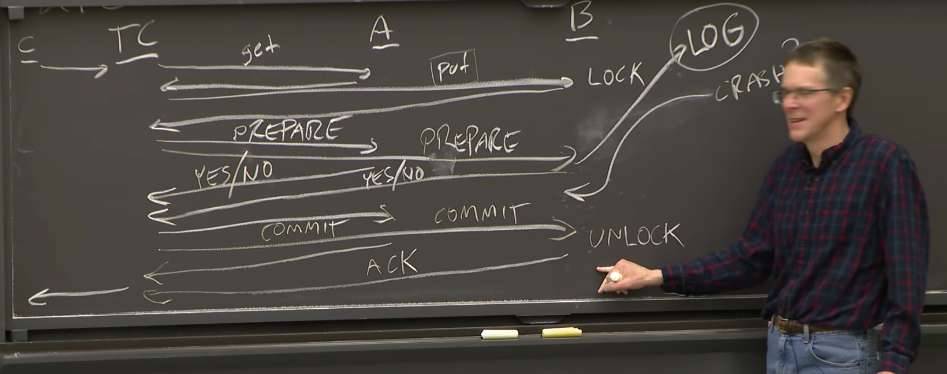 C TC A B LOG
get
put LOCK CRASH?
PREPARE PREPARE
YES/NO YES/NO
COMMIT COMMIT
UNLOCK
ACK